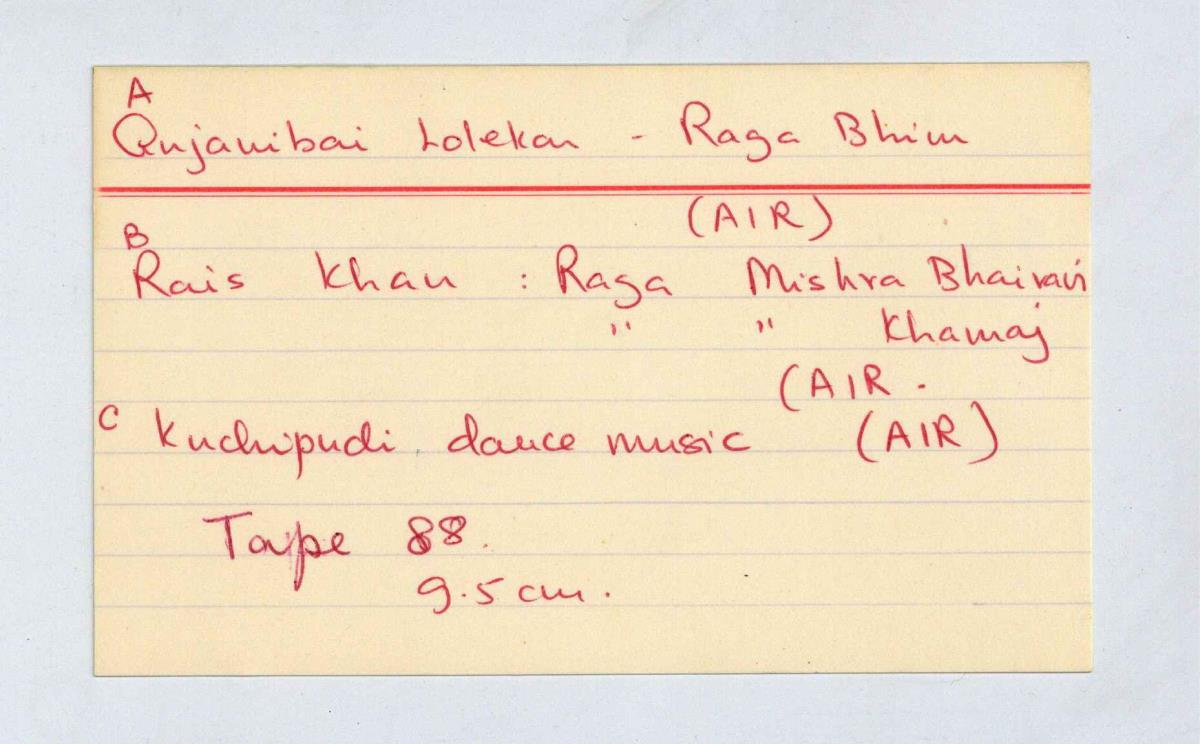 A
Anjanibai Lolekar - Raga Bhim
(AIR)
B
Rais Khan : Raga Mishra Bhairavi
" " Khamaj
(AIR .
C Kuchipudi dance music (AIR)
Tape 88.
9.5 cm.